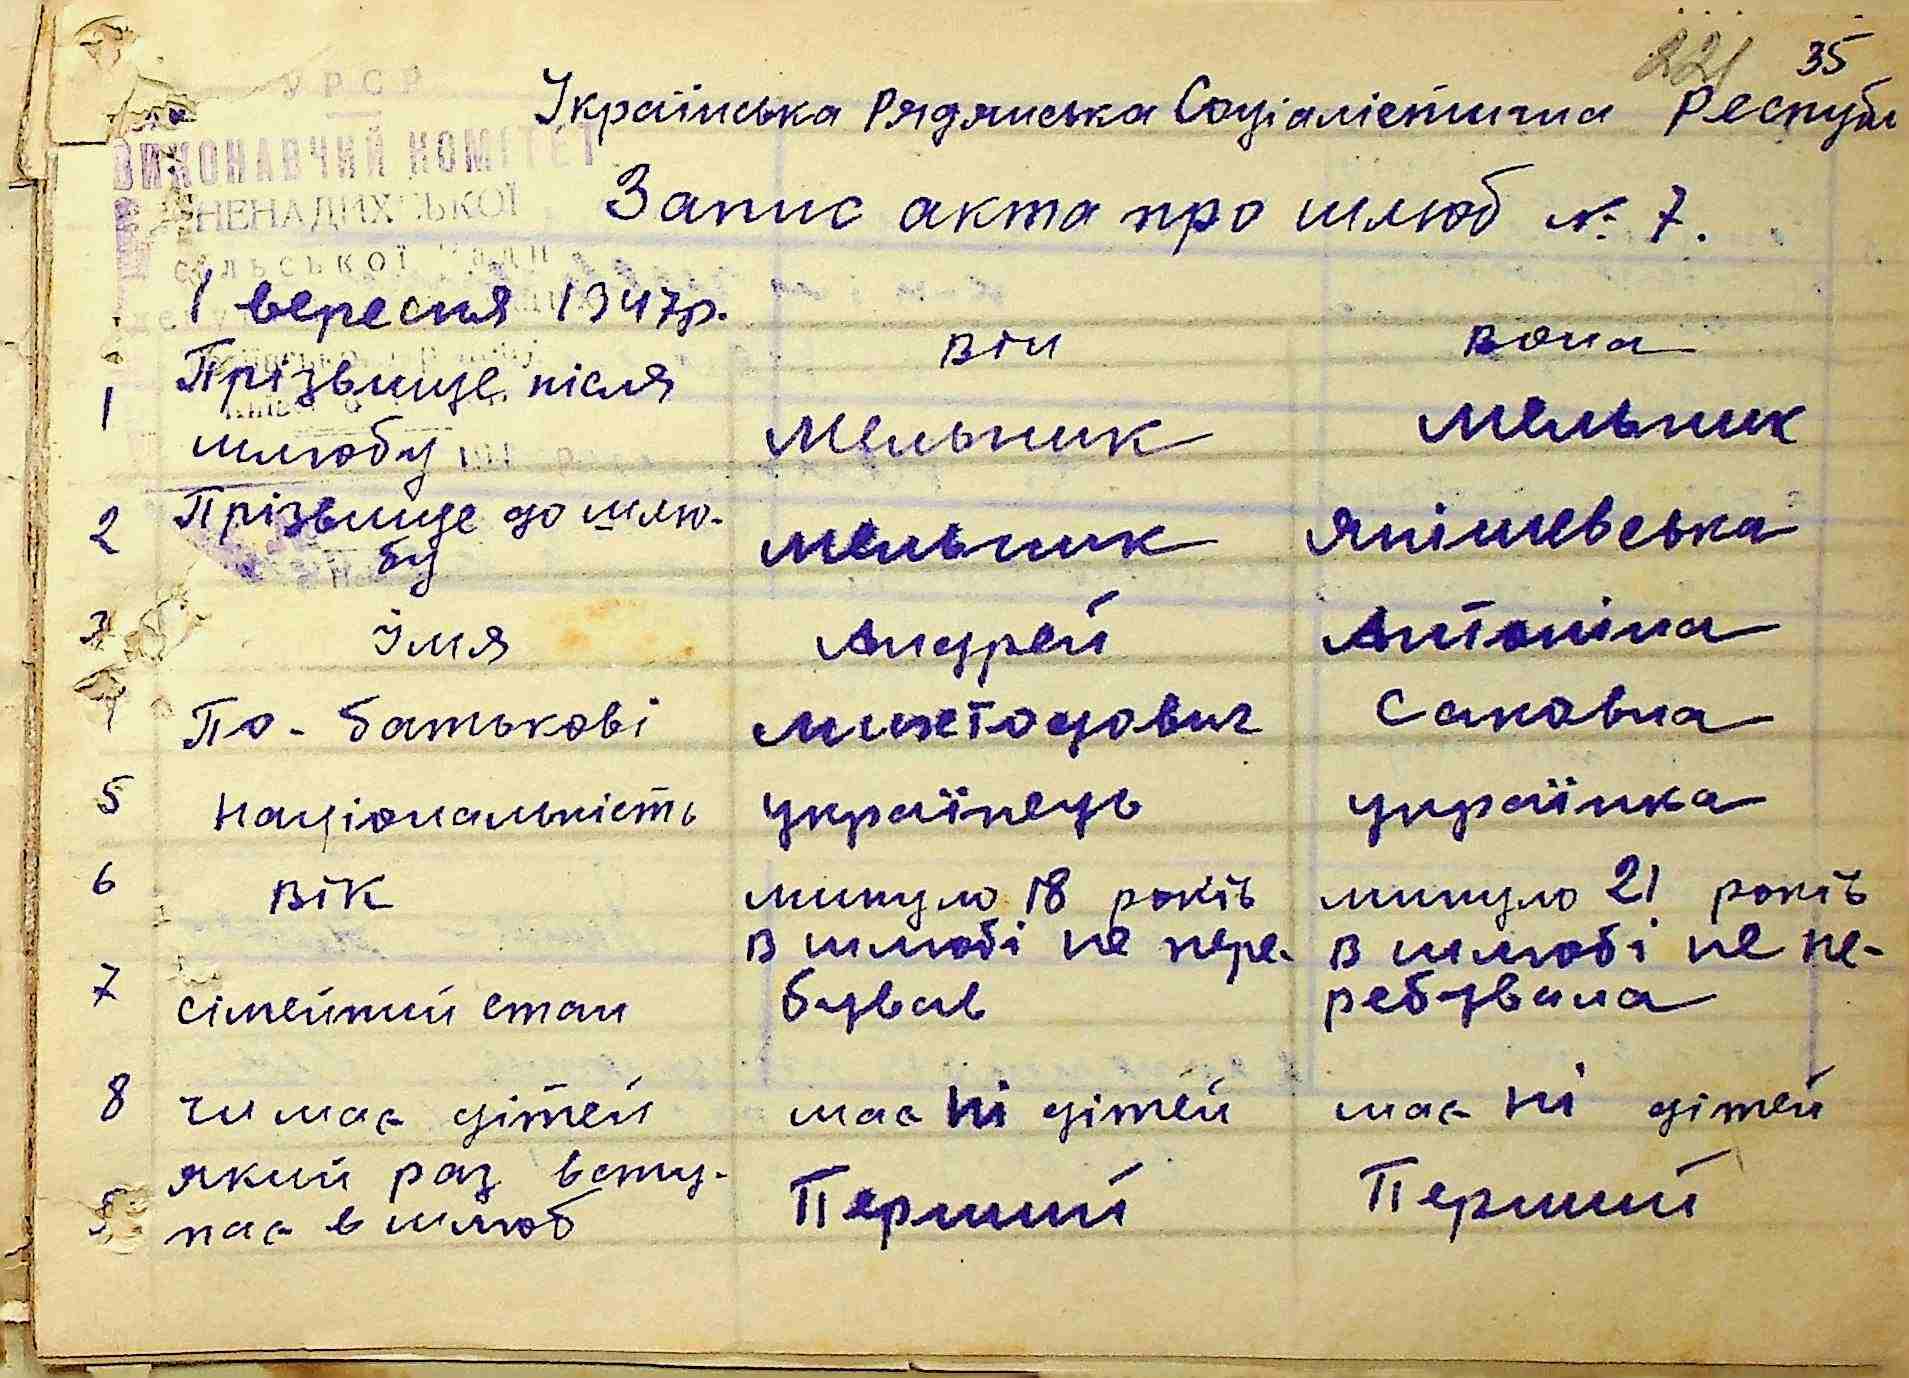 221 35
Українська Рядянська Соціалістична Республ
УРСР
ВИКОНАВЧИЙ КОМІТЕТ
НЕНАДИХСЬКОЇ
сільської Ради
Запис акта про шлюб № 7.
1 вересня 1947р.
він вона
1 Прізвище після
шлюбу Мельник Мельник
2 Прізвище до шлю-
бу Мельник Янішевська
3 Імя Андрей Антоніна
4 По-батькові Саковна
5 Національність українець українка
6 вік минуло 18 років минуло 21 років
7 сімейний стан в шлюбі не пере- в шлюбі не пе-
бував ребувала
8 чи має дітей має ні дітей має ні дітей
9 який раз всту-
пає в шлюб Перший Перший